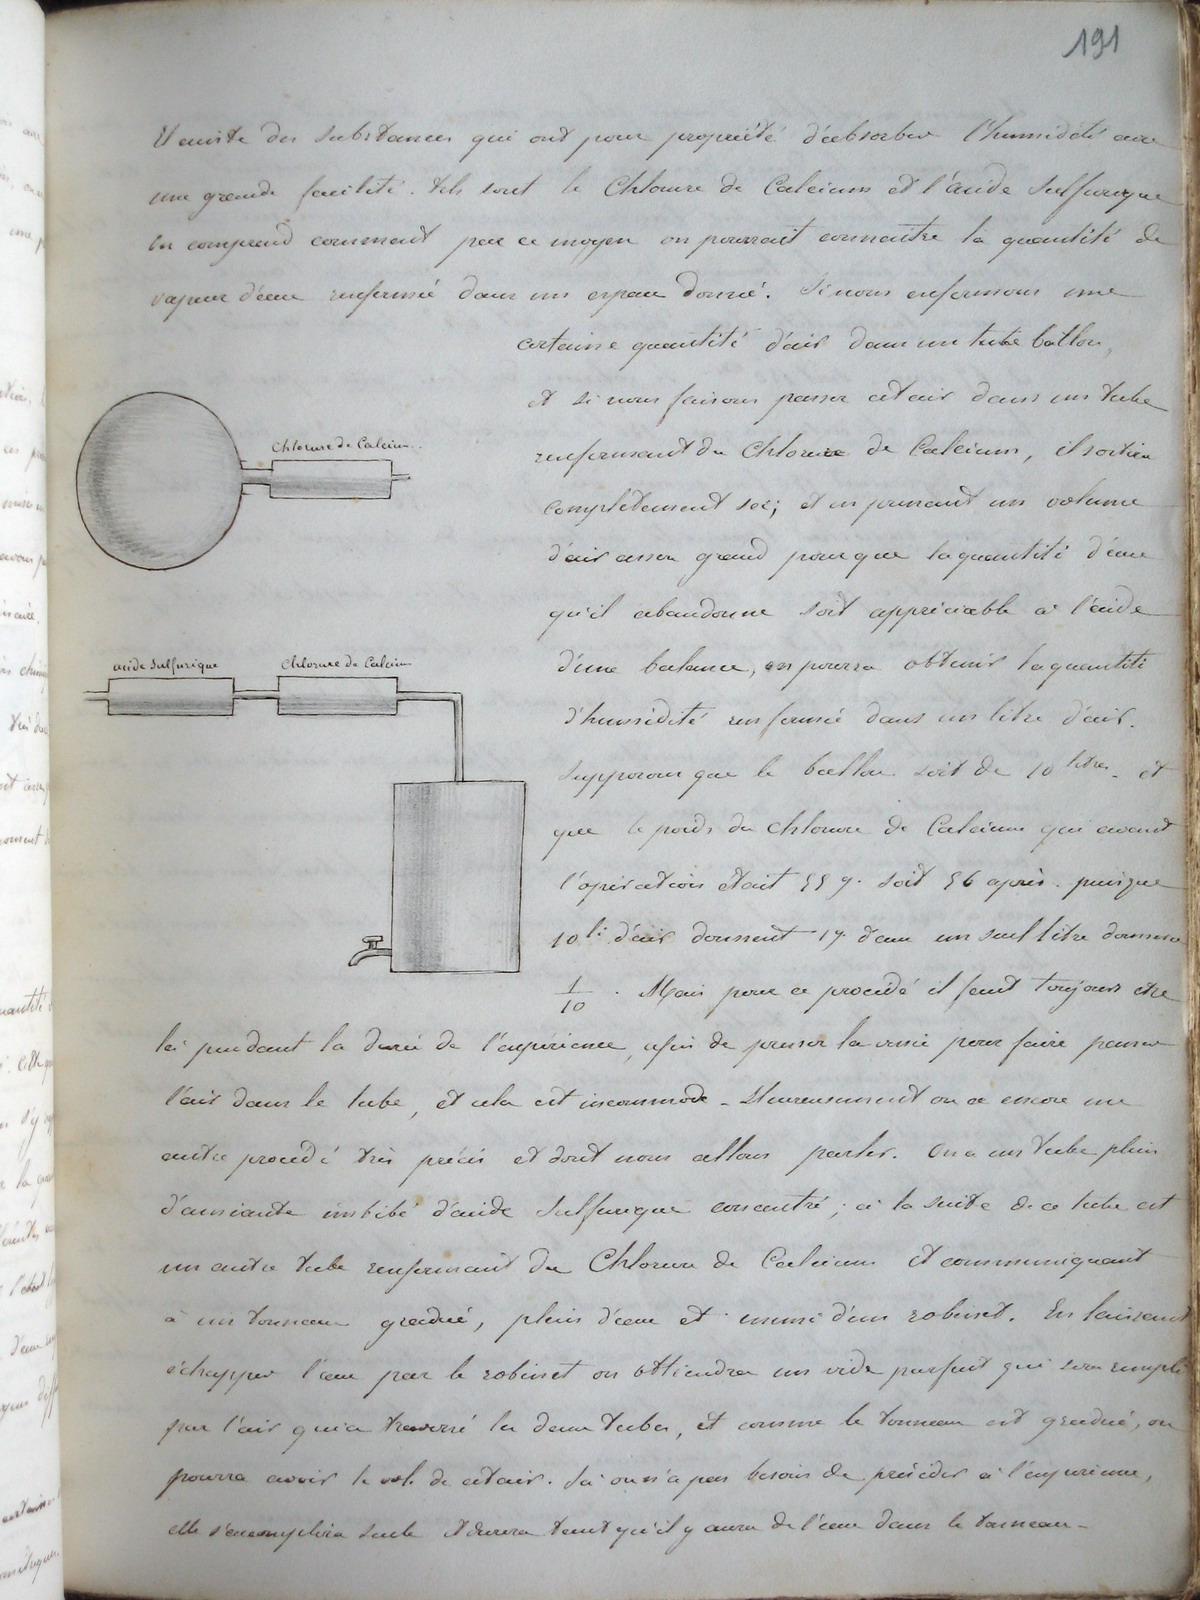 191
Il existe des substances qui ont pour propriété d'absorber l'humidité avec
une grande facilité. Tels sont le Chlorure de Calcium et l'acide Sulfurique
On comprend comment par ce moyen on pourrait connaitre la quantité de
vapeur d'eau renfermée dans un espace donné. Si nous enfermons une
certaine quantité d'air dans un tube ballon,
et si nous faisons passer cet air dans un tube
Chlorure de Calcium
renfermant du Chlorure de Calcium, il sortira
complètement sec; et en prenant un volume
d'air assez grand pour que la quantité d'eau
qu'il abandonne soit appréciable à l'aide
acide Sulfurique Chlorure de Calcium
d'une balance, on pourra obtenir la quantité
d'humidité renfermée dans un litre d'air.
Supposons que le ballon soit de 10 litres. et
que le poids du Chlorure de Calcium qui avant
l'opération était 55 g. soit 56 après. puisque
10 li d'air donnent 1 g. d'eau un seul litre donnera
1/10. Mais pour ce procédé il faut toujours etre
là pendant la durée de l'expérience, afin de presser la vessie pour faire passer
l'air dans le tube, et cela est incommode - Heureusement on a encore un
autre procédé très précis et dont nous allons parler. On a un tube plein
d'amiante imbibé d'acide Sulfurique concentré; à la suite de ce tube est
un autre tube renfermant du Chlorure de Calcium et communiquant
à un tonneau gradué, plein d'eau et muni d'un robinet. En laissant
échapper l'eau par le robinet on obtiendra un vide parfait qui sera rempli
par l'air qui a traversé les deux tubes, et comme le tonneau est gradué, on
pourra avoir le vol. de cet air. Ici on n'a pas besoin de présider à l'expérience,
elle s'accomplira seule et durera tant qu'il y aura de l'eau dans le tonneau-